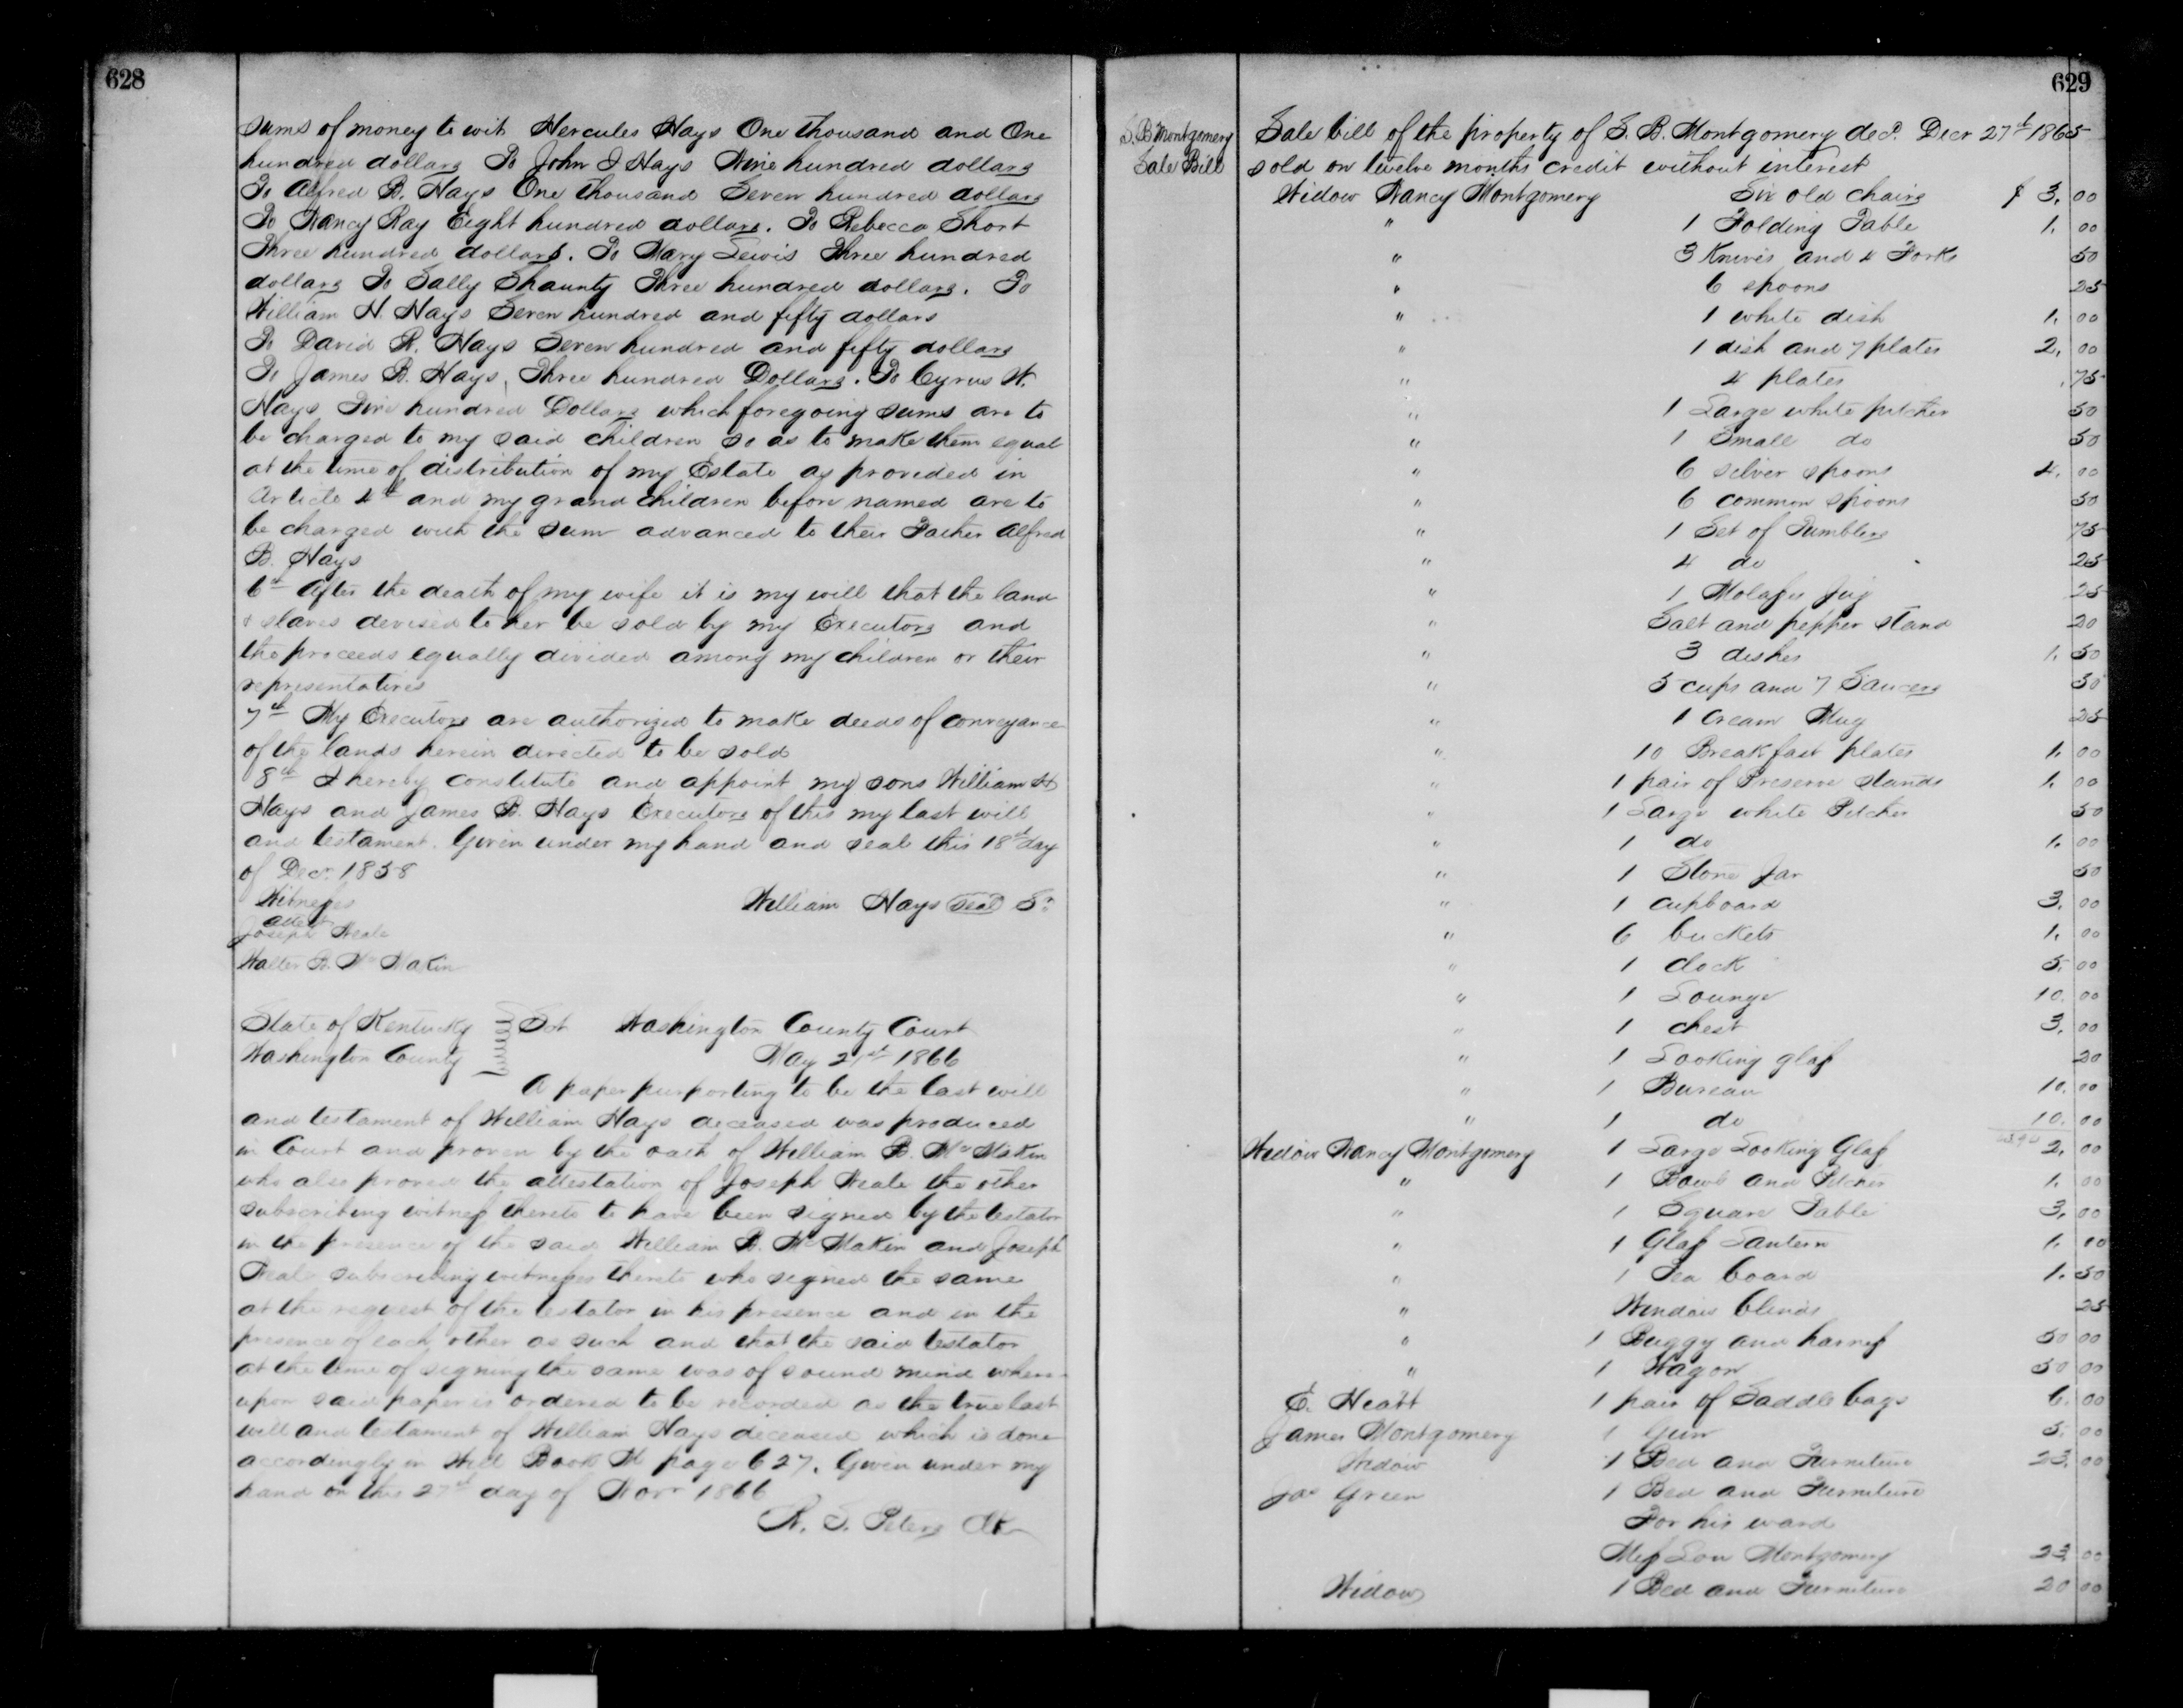 628
sums of money to wit Hercules Hays One thousand and One
hundred dollars To John I Hays Nine hundred dollars
To Alfred B. Hays One thousand Seven hundred dollars
To Nancy Ray Eight hundred dollars. To Rebecca Short
Three hundred dollars. To Mary Lewis Three hundred
dollars To Sally Shaunty Three hundred dollars. To
William H. Hays Seven hundred and fifty dollars
To David R. Hays Seven hundred and fifty dollars
To James B. Hays, Three hundred Dollars. To Cyrus W.
Hays Five hundred Dollars which foregoing sums are to
be charged to my said children so as to make them equal
at the time of distribution of my Estate as provided in
Article 4th and my grand children before named are to
be charged with the sum advanced to their Father Alfred
B. Hays
6th After the death of my wife it is my will that the land
& slaves devised to her be sold by my Executors and
the proceeds equally divided among my children or their
representatives
7th My Executors are authorized to make deeds of conveyance
of the lands herein directed to be sold
8th I hereby constitute and appoint my sons William H
Hays and James B. Hays Executors of this my last will
and testament. Given under my hand and seal this 18th day
of Decr. 1858
Witnesses William Hays seal Sr.
attest
Joseph Neale
Walter B. McMakin
State of Kentucky Sct Washington County Court
Washington County May 21st 1866
A paper purporting to be the last will
and testament of William Hays deceased was produced
in Court and proven by the oath of William B. McMakin
who also proved the attestation of Joseph Neale the other
subscribing witness thereto to have been signed by the testator
in the presence of the said William B. McMakin and Joseph
Neale subscribing witnesses thereto who signed the same
at the request of the testator in his presence and in the
presence of each other as such and that the said testator
at the time of signing the same was of sound mind where-
upon said paper is ordered to be recorded as the true last
will and testament of William Hays deceased which is done
accordingly in Will Book page 627. Given under my
hand on this 27th day of Novr 1866
Peters Clk
629
S. B Montgomery
Sale Bill
Sale bill of the property of S. B. Montgomery decd. Decr 27th 1865
sold on twelve months credit without interest
Widow Nancy Montgomery Six old chairs $ 3. 00
" 1 Folding Table 1. 00
" 3 Knives and 4 Forks 50
" 6 spoons 25
" 1 white dish 1. 00
" 1 dish and 7 plates 2. 00
" 4 plates .75
" 1 Large white pitcher 50
" 1 Small do 50
" 6 silver spoons 4. 00
" 6 common spoons 50
" 1 Set of Tumblers 75
" 4 do 25
" 1 Molasses Jug 25
" Salt and pepper stand 20
" 3 dishes 1. 50
" 5 cups and 7 Saucers 50
" 1 Cream Mug 25
" 10 Breakfast plates 1. 00
" 1 pair of Preserve stands 1. 00
" 1 Large white Pitcher 50
" 1 do 1. 00
" 1 Stone Jar 50
" 1 cupboard 3. 00
" 6 buckets 1. 00
" 1 clock 5. 00
" 1 Lounge 10. 00
" 1 chest 3. 00
" 1 Looking glass 20
" 1 Bureau 10. 00
" 1 do 10. 00
Widow Nancy Montgomery 1 Large Looking Glass 2. 00
" 1 Bowl and Pitcher 1. 00
" 1 Square Table 3. 00
" 1 Glass Lantern 1. 00
" 1 Tea board 1. 50
" Window blinds 25
" 1 Buggy and harness 50 00
" 1 Wagon 50 00
E. Heatt 1 pair of Saddle bags 6. 00
James Montgomery 1 Gun 5. 00
Widow 1 Bed and Furniture 23. 00
Jas Green 1 Bed and Furniture
For his ward
Miss Lou Montgomery 23. 00
Widow 1 Bed and Furniture 20 00